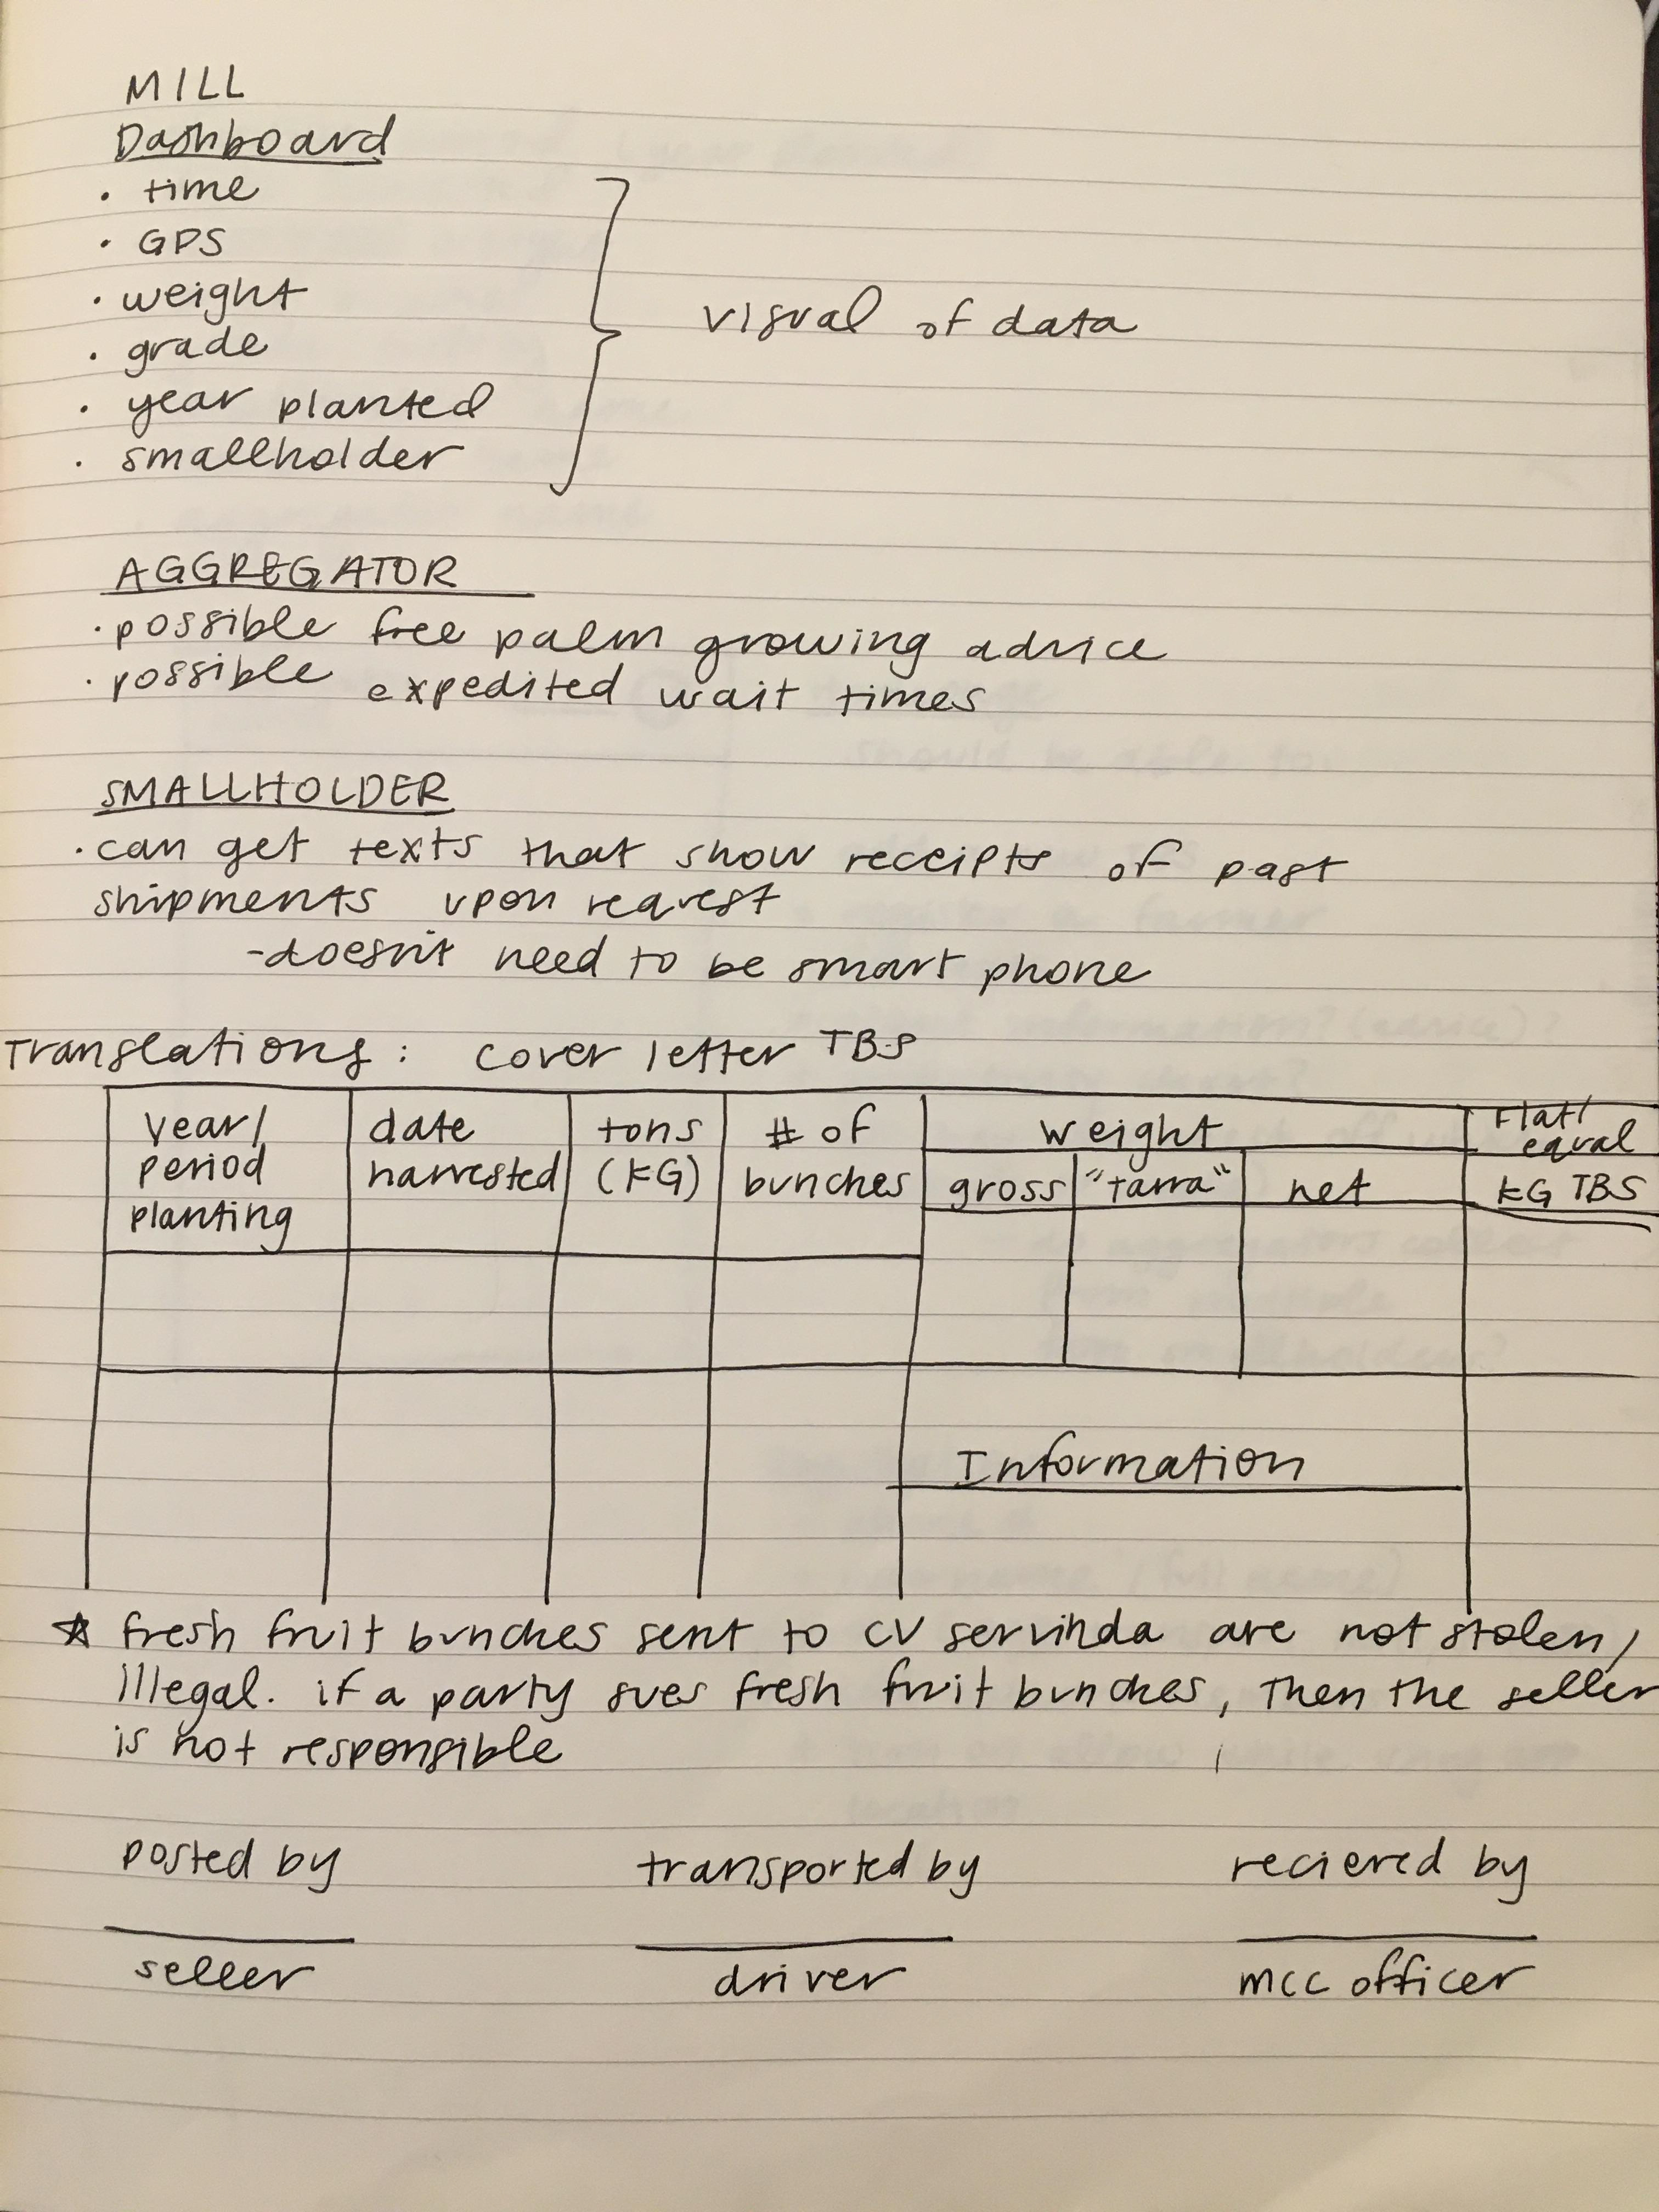 MILL
Dashboard
• time
• GPS
• weight
• grade
• year planted
• smallholder
visual of data
AGGREGATOR
• possible free palm growing advice
• possible expedited wait times
SMALLHOLDER
• can get texts that show receipts of past
shipments upon request
- doesn't need to be smart phone
Translations: cover letter TBS
year/ period planting
date harvested
tons (KG)
# of bunches
weight
gross
"tarra"
net
Flat/ equal
KG TBS
Information
☆ fresh fruit bunches sent to CV servinda are not stolen/
illegal. if a party sues fresh fruit bunches, then the seller
is not responsible
posted by
transported by
recieved by
seller
driver
mcc officer